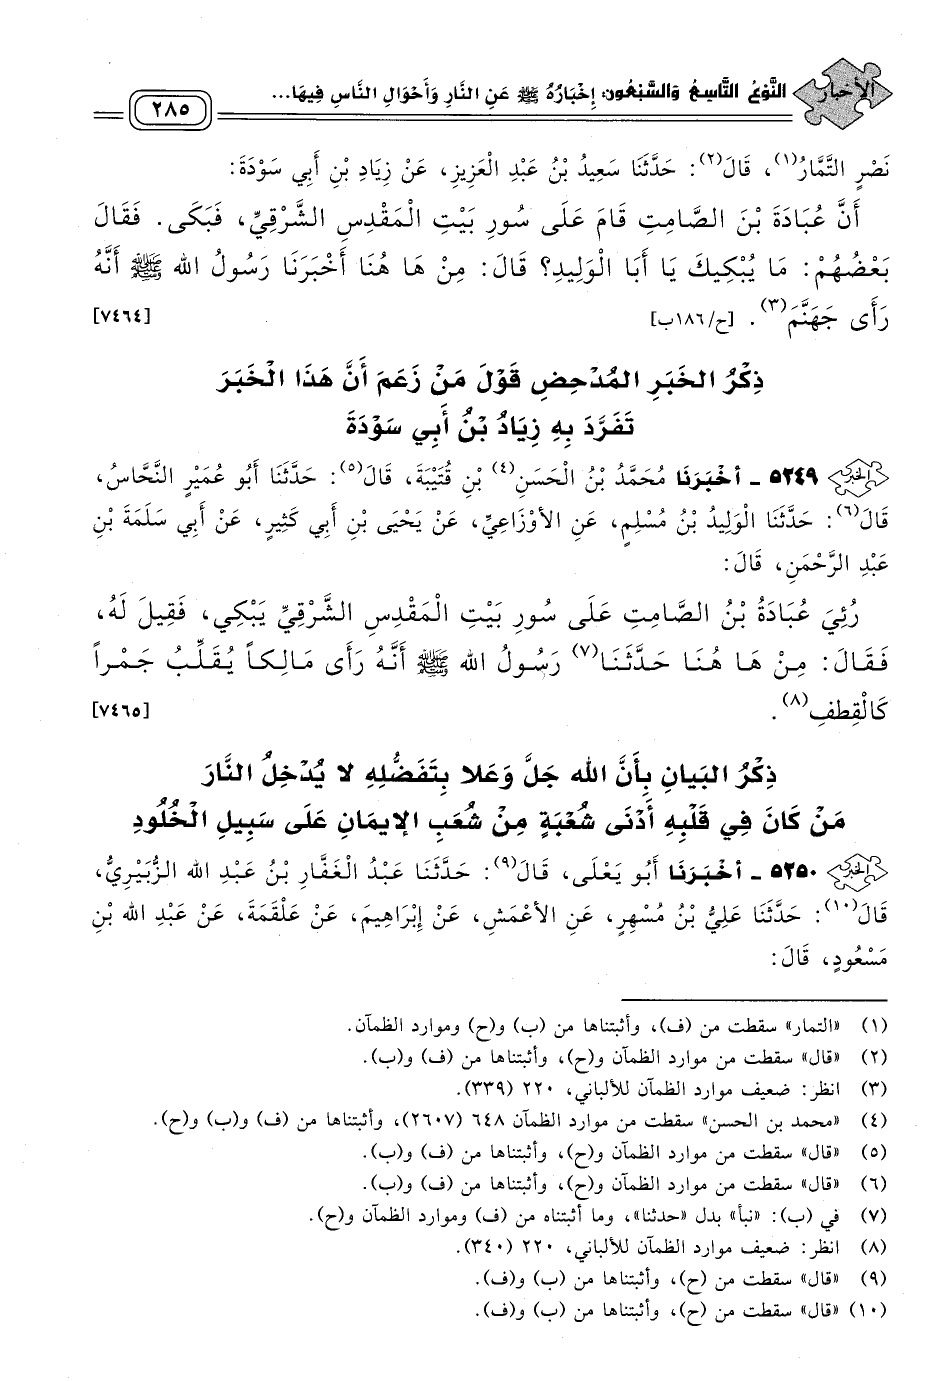 الأخبار
النَّوْعُ التَّاسِعُ وَالسَّبْعُونَ: إِخْبَارُهُ ﷺ عَنِ النَّارِ وَأَحْوَالِ النَّاسِ فِيهَا...
٢٨٥
نَصْرٍ التَّمَّارُ(١)، قَالَ(٢): حَدَّثَنَا سَعِيدُ بْنُ عَبْدِ الْعَزِيزِ، عَنْ زِيَادِ بْنِ أَبِي سَوْدَةَ:
أَنَّ عُبَادَةَ بْنَ الصَّامِتِ قَامَ عَلَى سُورِ بَيْتِ الْمَقْدِسِ الشَّرْقِيِّ، فَبَكَى. فَقَالَ
بَعْضُهُمْ: مَا يُبْكِيكَ يَا أَبَا الْوَلِيدِ؟ قَالَ: مِنْ هَا هُنَا أَخْبَرَنَا رَسُولُ الله ﷺ أَنَّهُ
رَأَى جَهَنَّمَ(٣). [ح/١٨٦ب] [٧٤٦٤]
ذِكْرُ الخَبَرِ المُدْحِضِ قَوْلَ مَنْ زَعَمَ أَنَّ هَذَا الْخَبَرَ
تَفَرَّدَ بِهِ زِيَادُ بْنُ أَبِي سَوْدَةَ
٥٢٤٩ - أَخْبَرَنَا مُحَمَّدُ بْنُ الْحَسَنِ(٤) بْنِ قُتَيْبَةَ، قَالَ(٥): حَدَّثَنَا أَبُو عُمَيْرٍ النَّحَّاسُ،
قَالَ(٦): حَدَّثَنَا الْوَلِيدُ بْنُ مُسْلِمٍ، عَنِ الأَوْزَاعِيِّ، عَنْ يَحْيَى بْنِ أَبِي كَثِيرٍ، عَنْ أَبِي سَلَمَةَ بْنِ
عَبْدِ الرَّحْمَنِ، قَالَ:
رُئِيَ عُبَادَةُ بْنُ الصَّامِتِ عَلَى سُورِ بَيْتِ الْمَقْدِسِ الشَّرْقِيِّ يَبْكِي، فَقِيلَ لَهُ،
فَقَالَ: مِنْ هَا هُنَا حَدَّثَنَا(٧) رَسُولُ الله ﷺ أَنَّهُ رَأَى مَالِكاً يُقَلِّبُ جَمْراً
كَالْقِطفِ(٨). [٧٤٦٥]
ذِكْرُ البَيَانِ بِأَنَّ اللهَ جَلَّ وَعَلا بِتَفَضُّلِهِ لا يُدْخِلُ النَّارَ
مَنْ كَانَ فِي قَلْبِهِ أَدْنَى شُعْبَةٍ مِنْ شُعَبِ الإيمَانِ عَلَى سَبِيلِ الْخُلُودِ
٥٢٥٠ - أَخْبَرَنَا أَبُو يَعْلَى، قَالَ(٩): حَدَّثَنَا عَبْدُ الْغَفَّارِ بْنُ عَبْدِ الله الزُّبَيْرِيُّ،
قَالَ(١٠): حَدَّثَنَا عَلِيُّ بْنُ مُسْهِرٍ، عَنِ الأَعْمَشِ، عَنْ إِبْرَاهِيمَ، عَنْ عَلْقَمَةَ، عَنْ عَبْدِ الله بْنِ
مَسْعُودٍ، قَالَ:
(١) «التمار» سقطت من (ف)، وأثبتناها من (ب) و(ح) وموارد الظمآن.
(٢) «قال» سقطت من موارد الظمآن و(ح)، وأثبتناها من (ف) و(ب).
(٣) انظر: ضعيف موارد الظمآن للألباني، ٢٢٠ (٣٣٩).
(٤) «محمد بن الحسن» سقطت من موارد الظمآن ٦٤٨ (٢٦٠٧)، وأثبتناها من (ف) و(ب) و(ح).
(٥) «قال» سقطت من موارد الظمآن و(ح)، وأثبتناها من (ف) و(ب).
(٦) «قال» سقطت من موارد الظمآن و(ح)، وأثبتناها من (ف) و(ب).
(٧) في (ب): «نبأ» بدل «حدثنا»، وما أثبتناه من (ف) وموارد الظمآن و(ح).
(٨) انظر: ضعيف موارد الظمآن للألباني، ٢٢٠ (٣٤٠).
(٩) «قال» سقطت من (ح)، وأثبتناها من (ب) و(ف).
(١٠) «قال» سقطت من (ح)، وأثبتناها من (ب) و(ف).